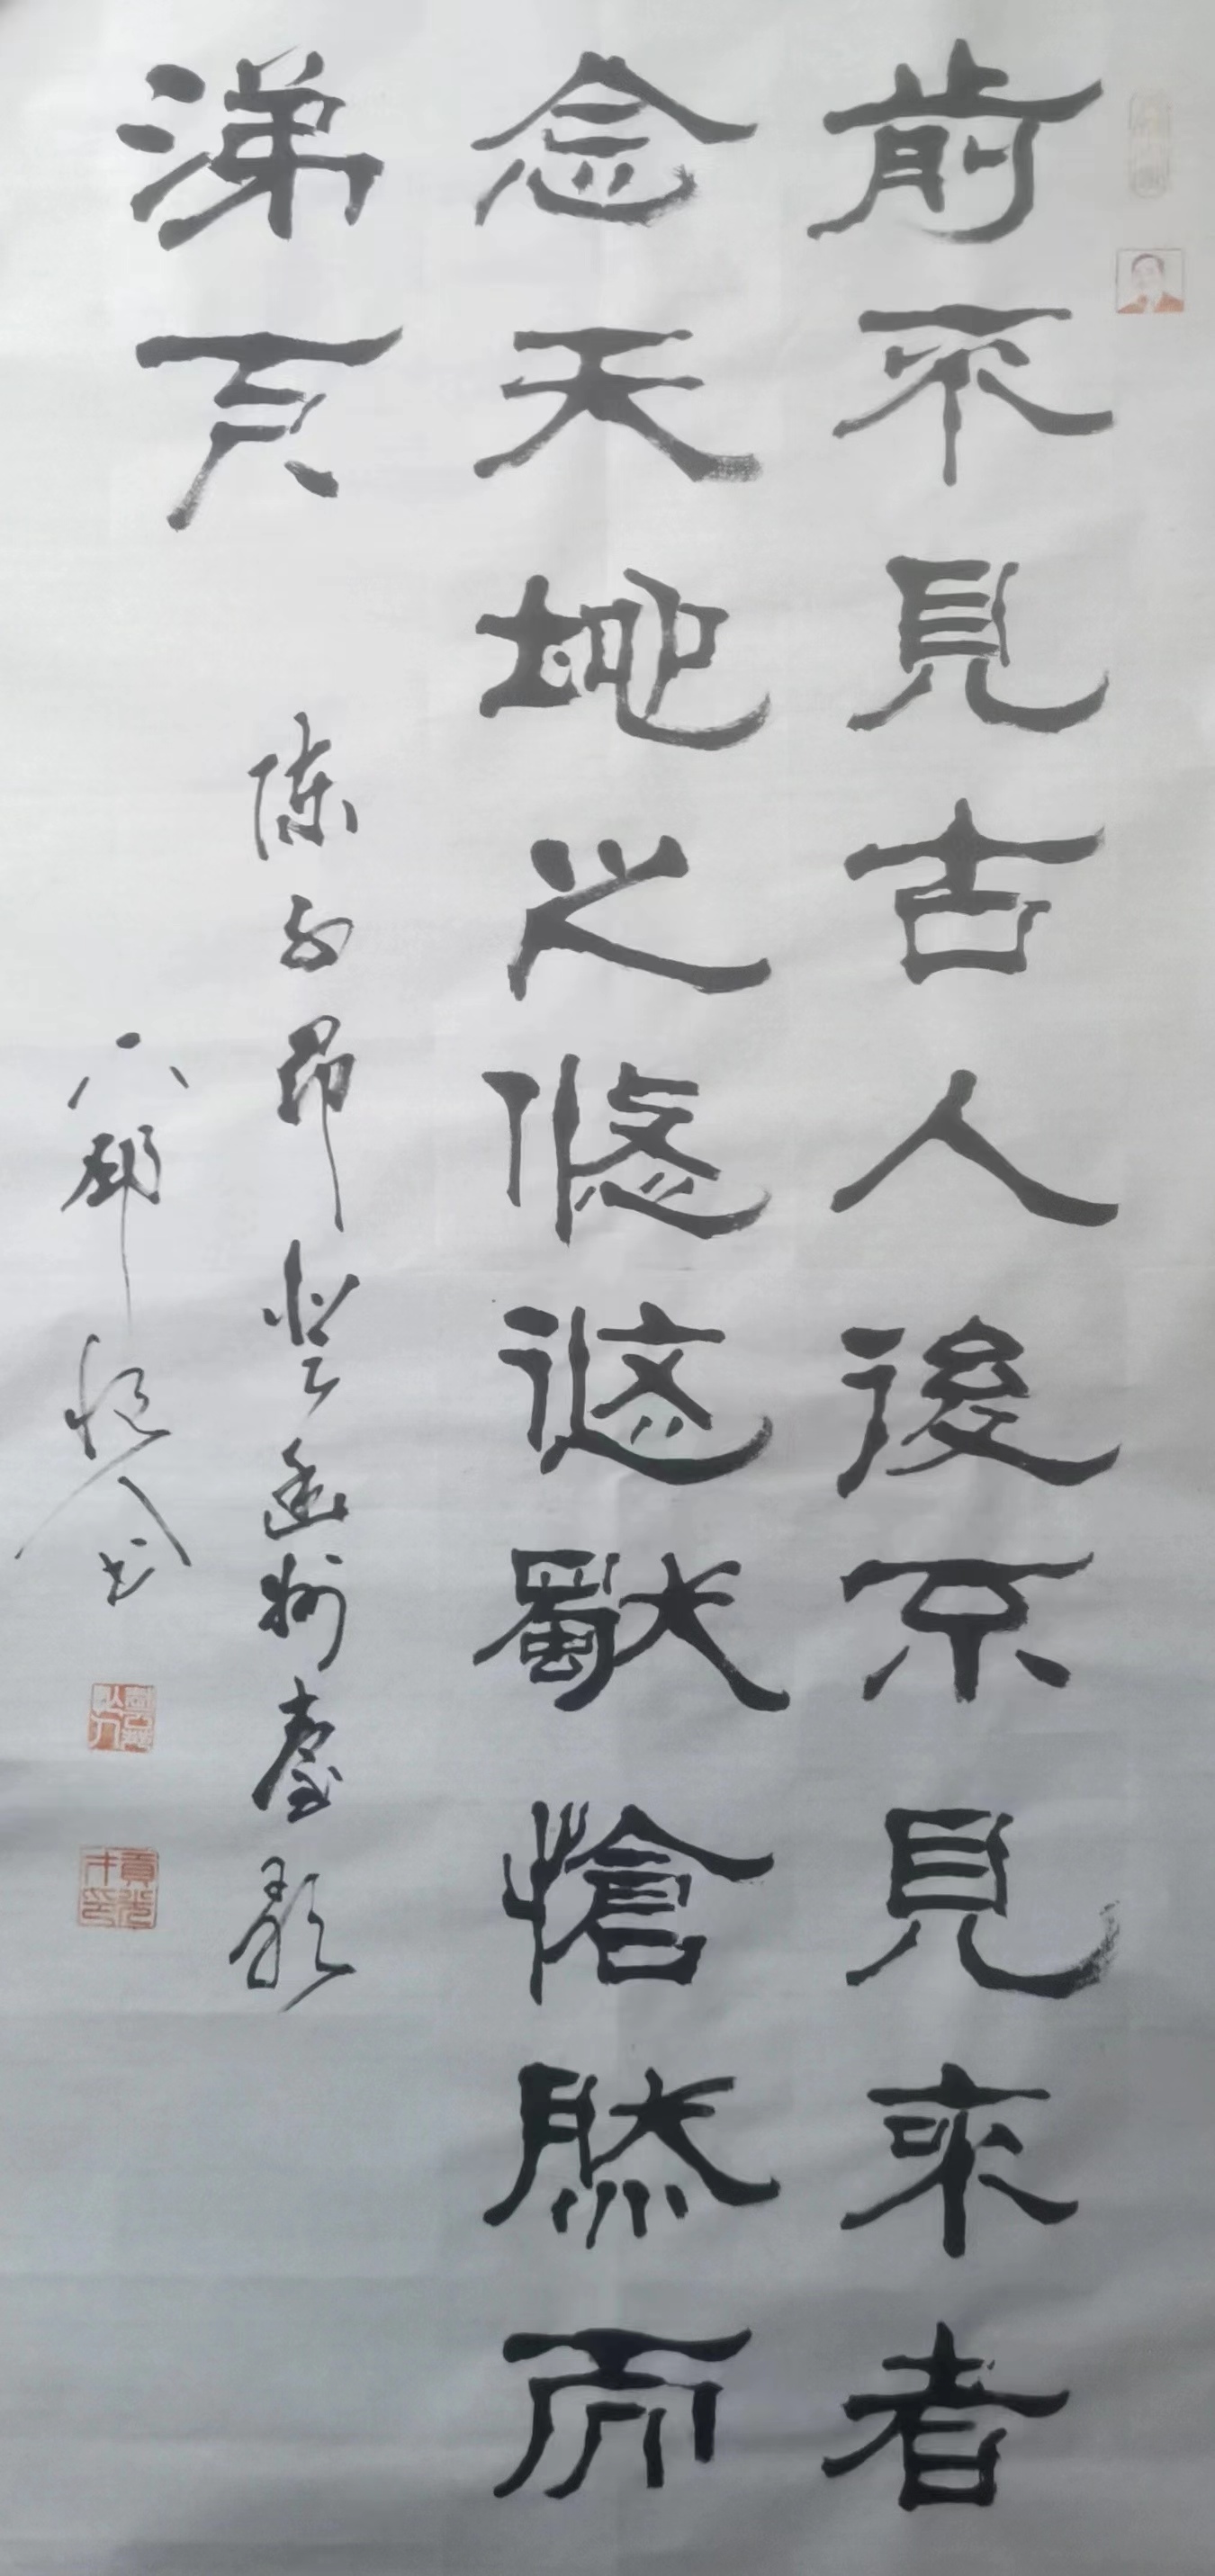 前不見古人後不見來者
念天地之悠悠獨愴然而
涕下
陈子昂登幽州臺歌
六邨